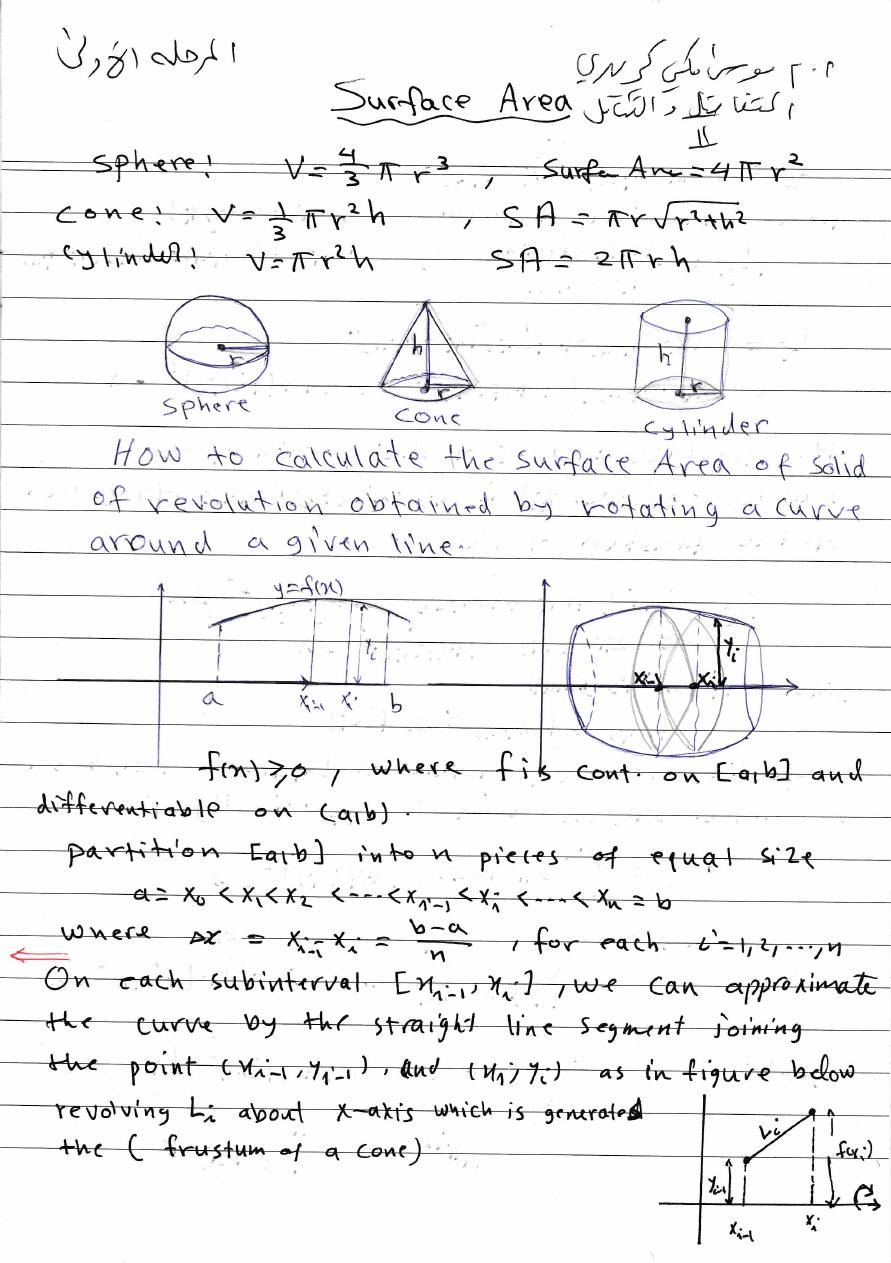 المرحله الأولى
م.م سوسن مكي كريدي
Surface Area
التفاضل والتكامل
II
Sphere! V = 4/3 π r³ , Surfac Are = 4π r²
Cone! V = 1/3 πr²h , SA = πr√(r²+h²)
Cylinder! V = πr²h SA = 2πrh
r
h
r
h
r
Sphere
Cone
Cylinder
How to calculate the surface Area of solid
of revolution obtained by rotating a curve
around a given line.
y=f(x)
yᵢ
a xᵢ₋₁ xᵢ b
yᵢ
xᵢ₋₁ xᵢ
f(x) ≥ 0 , where f is cont. on [a,b] and
differentiable on (a,b).
partition [a,b] into n pieces of equal size
a = x₀ < x₁ < x₂ < ---- < xᵢ₋₁ < xᵢ < ---- < xₙ = b
where Δx = xᵢ₋₁ xᵢ = b-a/n , for each i=1,2,...,n
On each subinterval [xᵢ₋₁, xᵢ], we can approximate
the curve by the straight line segment joining
the point (xᵢ₋₁, yᵢ₋₁), and (xᵢ, yᵢ) as in figure below
revolving Lᵢ about x-axis which is generated
the ( frustum of a cone)
Lᵢ
f(xᵢ)
yᵢ₋₁
xᵢ₋₁ xᵢ